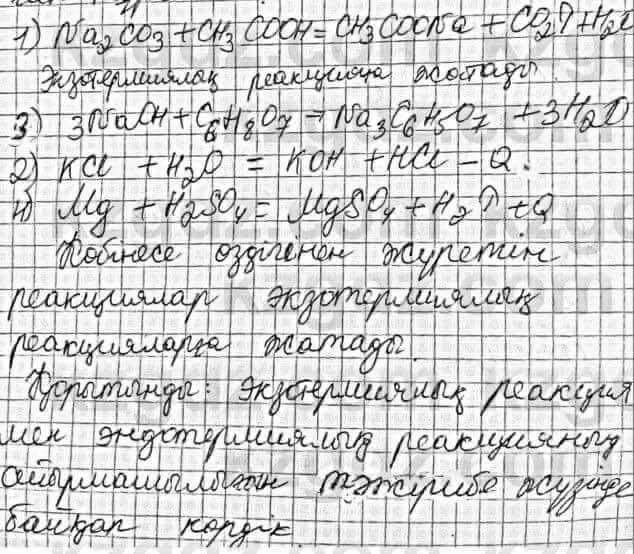 1) Na₂CO₃ + CH₃COOH = CH₃COONa + CO₂↑ + H₂O
Экзотермиялық реакцияға жатады.
3) 3NaOH + C₆H₈O₇ → Na₃C₆H₅O₇ + 3H₂O
2) KCl + H₂O = KOH + HCl – Q.
4) Mg + H₂SO₄ = MgSO₄ + H₂↑ + Q
Көбінесе өздігінен жүретін
реакциялар экзотермиялық
реакцияларға жатады.
Қорытынды: экзотермиялық реакция
мен эндотермиялық реакцияның
айырмашылығын тәжірибе жүзінде
байқап көрдік